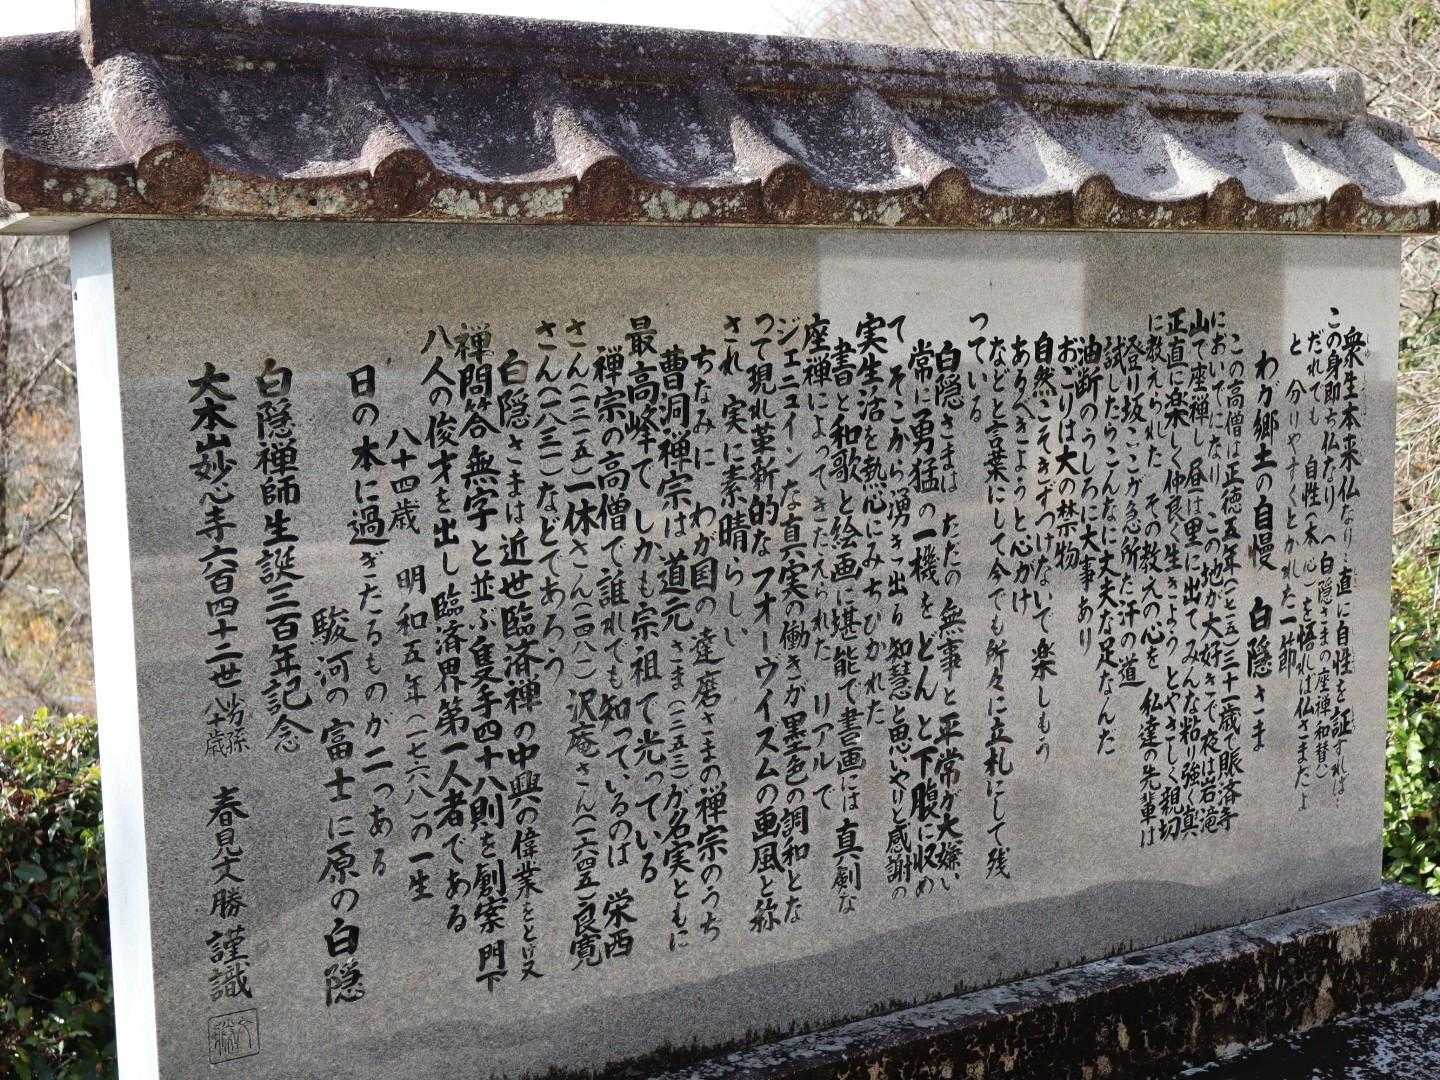 衆生本来仏なり…直に自性を証すれば…
この身即ち仏なり へ白隠さまの座禅和賛い
だれても 自性(本心)を悟れは仏さまだよ
と 分りやすくとかれた一節
わが郷土の自慢 白隠さま
この高僧は正徳五年(一七一五)三十一歳で賑済寺
においでになり この地が大好きで夜は岩滝
山て座禅し 昼は里に出てみんな粘り強く真
正直に楽しく仲良く生きようとやさしく親切
に教えられた その教えの心を 仏達の先輩は
登り坂ここが急所だ汗の道
試したらこんなに丈夫な足なんだ
油断のうしろに大事あり
おごりは大の禁物
自然こそきずつけないで楽しもう
あるべきようと心がけ
などと言葉にして今でも所々に立札にして残
っている
白隠さまは ただの無事と平常が大嫌い
常に勇猛の一機をどんと下腹に収め
て そこから湧き出る知慧と思いやりと感謝の
実生活を熱心にみちびかれた
書と和歌と絵画に堪能で書画には真剣な
座禅によってきたえられた リアルて
ジエニュインな真実の働きが墨色の調和とな
って現れ革新的なフオーウイスムの画風と称
され 実に素晴らしい
ちなみに わが国の達磨さまの禅宗のうち
曹洞禅宗は 道元さま(一二五三)が名実ともに
最高峰て しかも宗祖て光っている
禅宗の高僧で誰れでも知っているのは 栄西
さん(一二一五)一休さん(一四八一)沢庵さん(一六四五)良寛
さん(一八三一)などてあろう
白隠さまは近世臨済禅の中興の偉業をとげ又
禅問答無字と並ぶ隻手四十八則を創案 門下
八人の俊才を出し臨済界第一人者である
八十四歳 明和五年(一七六八)の一生
日の本に過ぎたるものか二つある
駿河の富士に原の白隠
白隠禅師生誕三百年記念
大本山妙心寺六百四十二世 八十歳 春見文勝 謹識